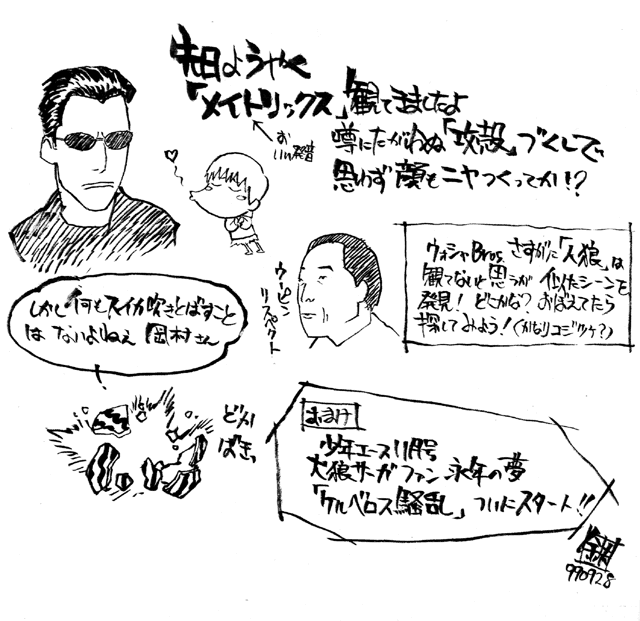 先日ようやく
「メイトリックス」観てきましたよ
おいい発音
噂にたがわぬ「攻殻」づくしで
思わず顔もニヤつくってかい!?
ウォシャBros.さすがに「人狼」は
観てないと思うが似たシーンを
発見!どこかな?おぼえてたら
探してみよう!(かなりコジツケ?)
ウーピン
リスペクト
しかし何もスイカ吹きとばすこと
はないよねぇ岡村さん
どか
ばきっ
おまけ
少年エース11月号
犬狼サーガファン永年の夢
「ケルベロス騒乱」ついにスタート!!
990928